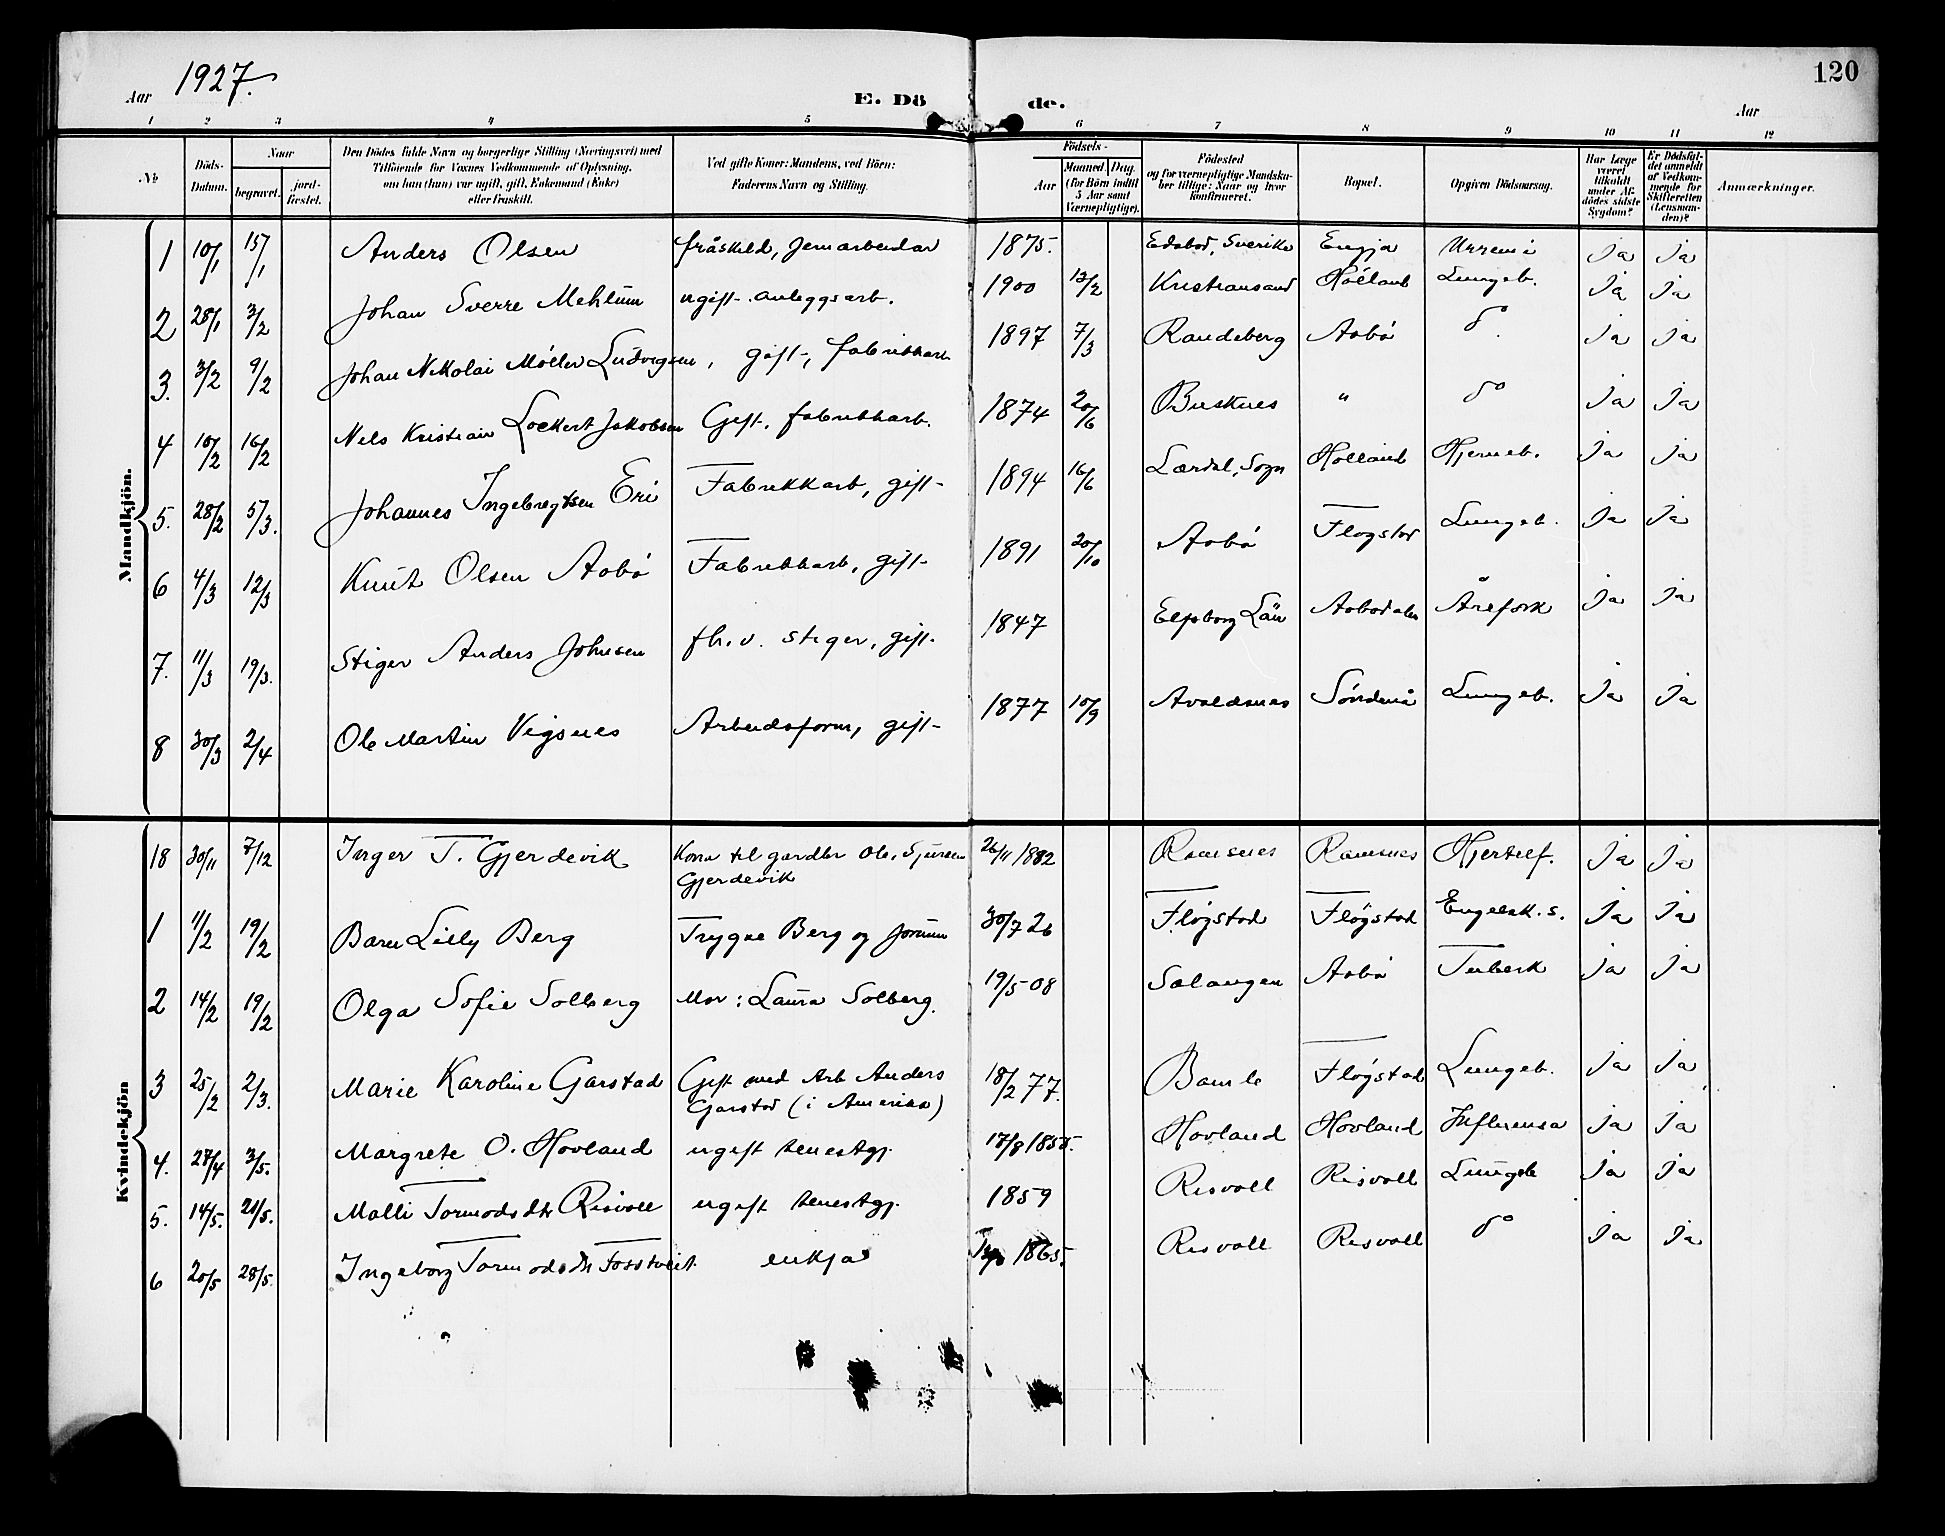 120
Aar 1927.
E. Döde.
Aar
1 2 3 4 5 6 7 8 9 10 11 12
№
Döds-Datum.
Naar
begravet.
jord-fæstet.
Den Dödes fulde Navn og borgerlige Stilling (Næringsvei) med
Tilföiende for Voxnes Vedkommende af Oplysning,
om han (hun) var ugift, gift, Enkemand (Enke)
eller fraskilt.
Ved gifte Koner: Mandens, ved Börn:
Faderens Navn og Stilling.
Födsels-
Aar
Maaned. Dag.
(for Börn indtil
5 Aar samt
Værnepligtige).
Födested
og for værnepligtige Mandska-
ber tillige: Naar og hvor
konfirmeret.
Bopæl.
Opgiven Dödsaarsag.
Har Læge
været
tilkaldt
under Af-
dödes sidste
Sygdom?
Er Dödsfal-
det anmeldt
af Vedkom-
mende for
Skifteretten
(Lensman-
den)?
Anmærkninger.
Mandkjön.
1 10/1 15/1 Anders Olsen fråskild, jernarbeidar 1875. Sverike Engja Urremi Ja Ja
2 28/1 3/2 Johan Sverre Mehlum ugift. anleggsarb. 1900 12/2 Kristiansand Hólland Lungeb. Ja Ja
3. 3/2 9/2 Johan Nikolai Móller Ludvigsen, gift, fabrikkarb 1897 7/3 Randeberg Aobó do. Ja Ja
4 10/2 16/2 Nels Kristian Lockert Jakobsen Gift, fabrikkarb. 1874 20/6 Busknes " do Ja Ja
5. 28/2 5/3. Johannes Ingebregtsen Eri Fabrikkarb, gift 1894 16/6 Lærdal, Sogn Holland Hjerneb. Ja Ja
6 4/3 12/3 Knut Olsen Aobó Fabrikkarb, gift 1891 20/10 Aobó Flogstad Lungeb. Ja Ja
7. 11/3 19/3. Stiger Anders Johnsen fh.v. stiger, gift. 1847 Elfsborg Län Aobodalen Årefork Ja Ja
8 30/3 2/4 Ole Martin Vigsnes Arbeidsform, gift 1877 10/9 Avaldsnes Sóndenå Lungeb. Ja Ja
Kvindekjön
18 30/11 7/12 Inger T. Gjerdevik Kona til gardbr Ole Sjursen 26/11 1882 Ramsnes Ramsnes Hjertelf. Ja Ja
Gjerdevik
1 11/2 19/2 Barn Lilly Berg Trygve Berg og Jorunn 30/7 26 Flógstad Flógstad Engelsk. s. Ja Ja
2 14/2 19/2 Olga Sofie Solberg Mor: Laura Solberg. 19/5-08 Salangen Aobó Tuberk Ja Ja
3 25/2 2/3. Marie Karoline Garstad Gift med Arb Anders 18/2 77. Bamle Flógstad Lungeb. Ja Ja
Garstad (i Amerika)
4. 27/4 3/5. Margrete O. Hovland ugift tenestgj. 17/8 1855. Hovland Hovland Influensa Ja Ja
5. 14/5. 21/5. Malli Tormodsdtr Risvoll ugift tenestgj. 1859 Risvoll Risvoll Lungeb Ja Ja
6 20/5 28/5. Ingeborg Tormodsdtr Fosstveit enkja 1865. Risvoll Risvoll do Ja Ja